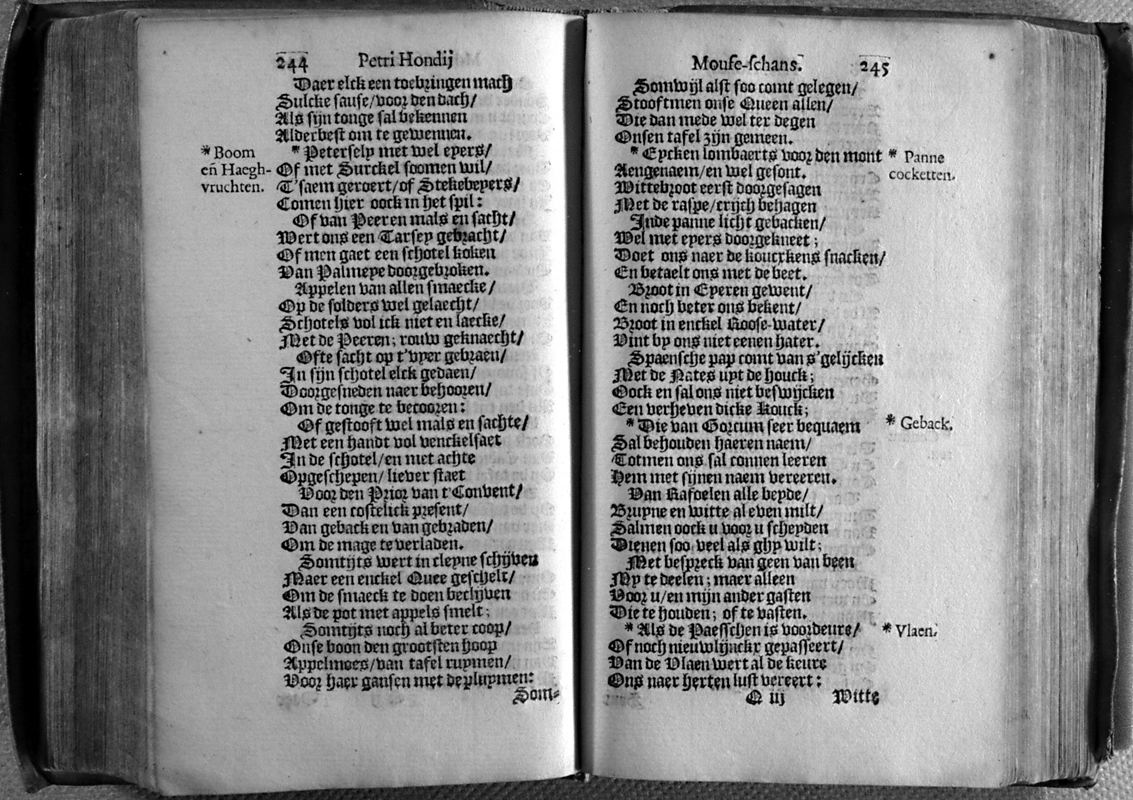 244 Petri Hondij
Daer elck een toebringen mach
Sulcke sause/voor den dach/
Als sijn tonge sal bekennen
Alderbest om te gewennen.
* Boom
eñ Haegh-
vruchten.
* Petersely met wel eyers/
Of met Surckel soomen wil/
T'saem geroert/of Stekebeyers/
Comen hier oock in het spil:
Of van Peeren mals en sacht/
Wert ons een Tarsey gebracht/
Of men gaet een schotel koken
Van Palmeye doorgebroken.
Appelen van allen smaecke/
Op de solders wel gelaecht/
Schotels vol ick niet en laecke/
Met de Peeren; rouw geknaecht/
Ofte sacht op t'vyer gebraen/
In sijn schotel elck gedaen/
Doorgesneden naer behooren/
Om de tonge te becooren:
Of gestooft wel mals en sachte/
Met een handt vol venckelsaet
In de schotel/en niet achte
Opgeschepen/liever staet
Voor den Prior van t'Convent/
Dan een costelick present/
Van geback en van gebraden/
Om de mage te verladen.
Somtijts wert in cleyne schijven
Maer een enckel Quee geschelt/
Om de smaeck te doen beclijven
Als de pot met appels smelt;
Somtijts noch al beter coop/
Onse boon den grootsten hoop
Appelmoes/van tafel ruymen/
Voor haer gansen met de pluymen:
Som-
Mouse-schans. 245
Somwijl alst soo comt gelegen/
Stooftmen onse Queen allen/
Die dan mede wel ter degen
Onsen tafel zijn gemeen.
* Eycken lombaerts voor den mont
* Panne
cocketten.
Aengenaem/en wel gesont.
Wittebroot eerst doorgesagen
Met de raspe/crijch behagen
Inde panne licht gebacken/
Wel met eyers doorgekneet;
Doet ons naer de koucxkens snacken/
En betaelt ons met de beet.
Broot in Eyeren gewent/
En noch beter ons bekent/
Broot in enckel Roose-water/
Vint by ons niet eenen hater.
Spaensche pap comt van s'gelijcken
Met de Nates uyt de houck;
Oock en sal ons niet beswijcken
Een verheven dicke Kouck;
* Die van Gorcum seer bequaem
* Geback.
Sal behouden haeren naem/
Totmen ons sal connen leeren
Hem met sijnen naem vereeren.
Van Rafoelen alle beyde/
Bruyne en witte al even milt/
Salmen oock u voor u scheyden
Dienen soo veel als ghy wilt;
Met bespreck van geen van been
My te deelen; maer alleen
Voor u/en mijn ander gasten
Die te houden; of te vasten.
* Als de Paesschen is voordeure/
* Vlaen.
Of noch nieuwlijnckx gepasseert/
Van de Vlaen wert al de keure
Ons naer herten lust vereert:
Q iij Witte